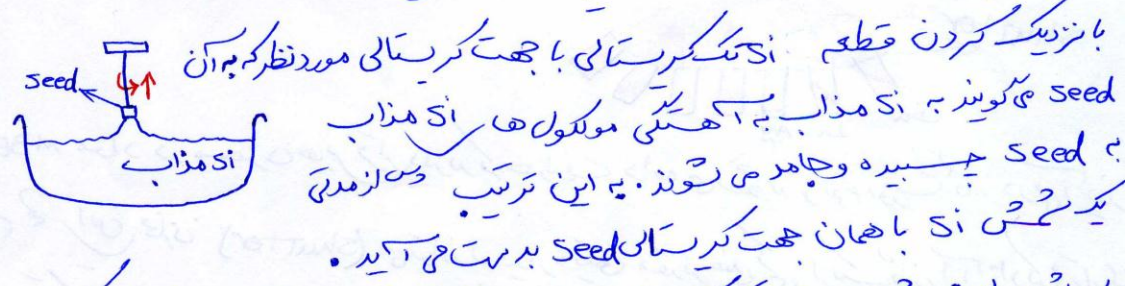 با نزدیک کردن قطعه Si تک کریستالی با جهت کریستالی مورد نظر که به آن
seed می‌گویند به Si مذاب به آهستگی مولکول ها Si مذاب
به seed چسبیده و جامد می شوند. به این ترتیب پس از مدتی
یک شمش Si با همان جهت کریستالی seed بدست می آید.
seed
Si مذاب